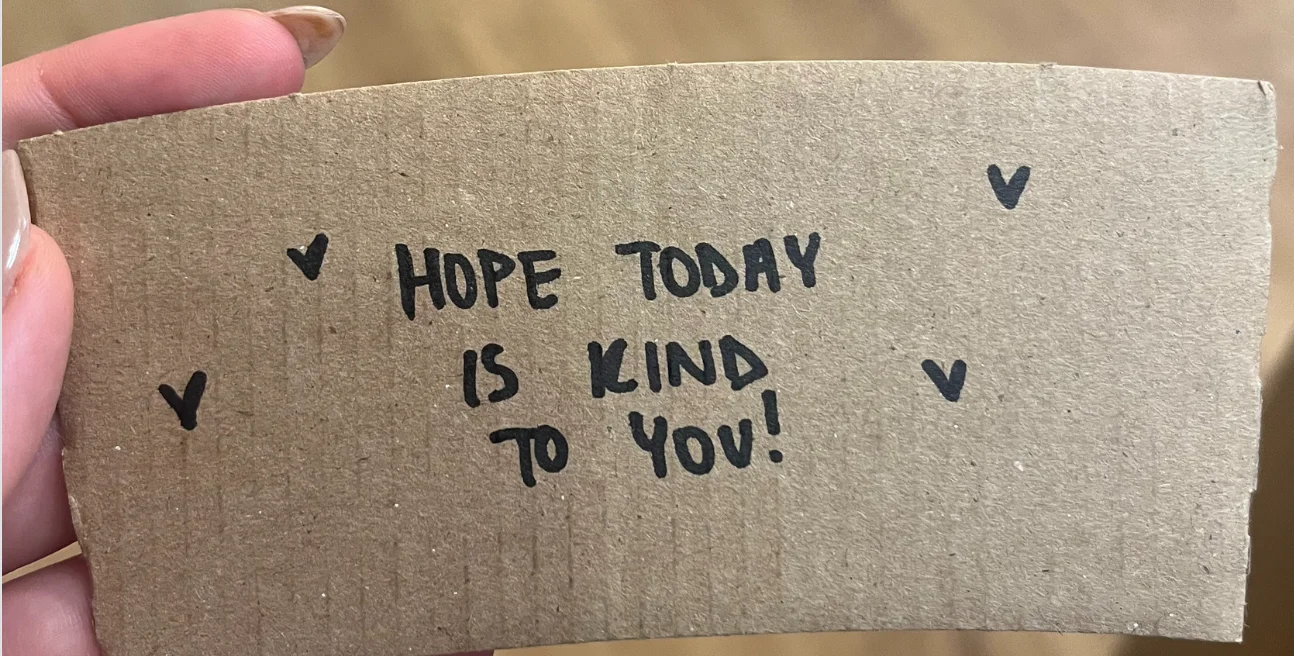 HOPE TODAY
IS KIND
TO YOU!